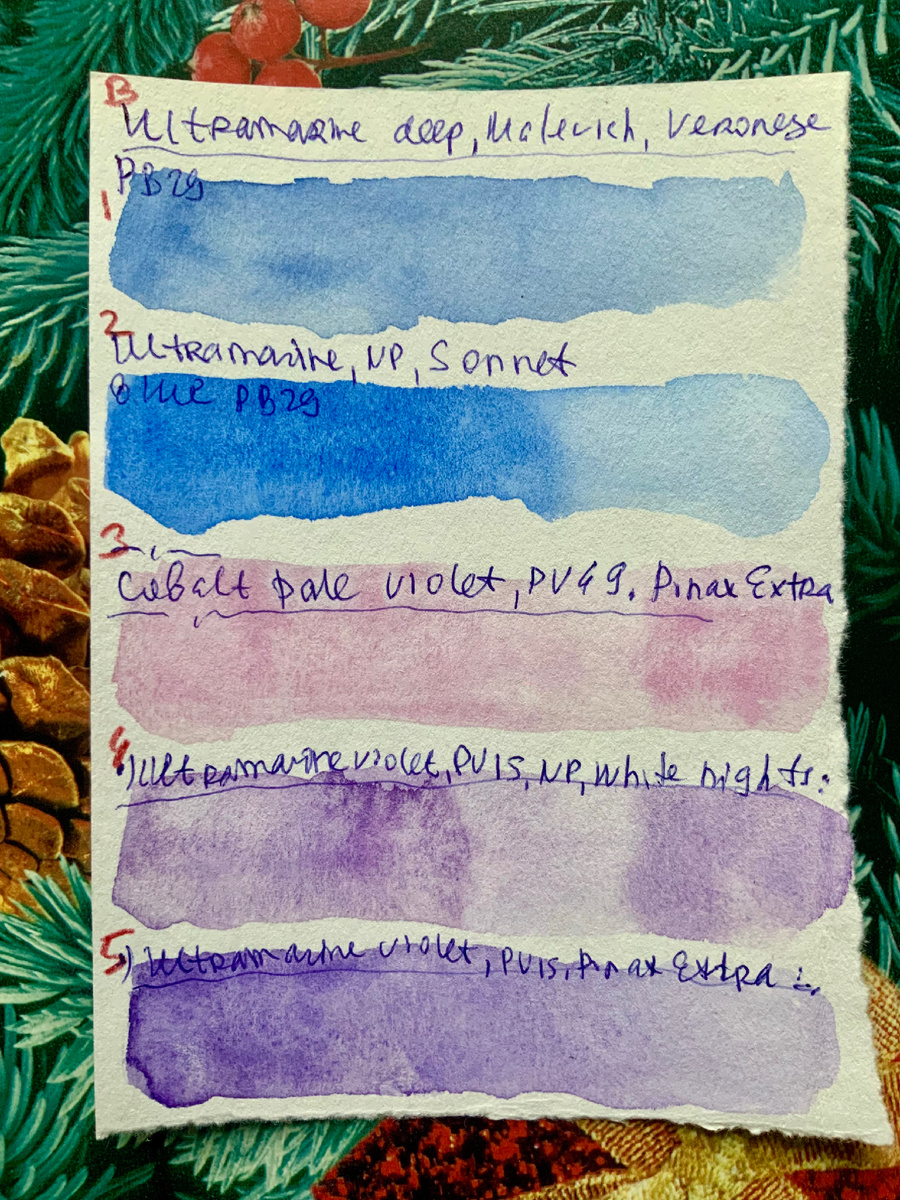 B
Ultramarine deep, Malevich, Veronese
PB29
1
2
Ultramarine, NP, Sonnet
Blue PB29
3
Cobalt pale violet, PV49. Pinax Extra
4.) Ultramarine violet, PV15, NP, White nights:
5.) Ultramarine violet, PV15, Pinax Extra :.